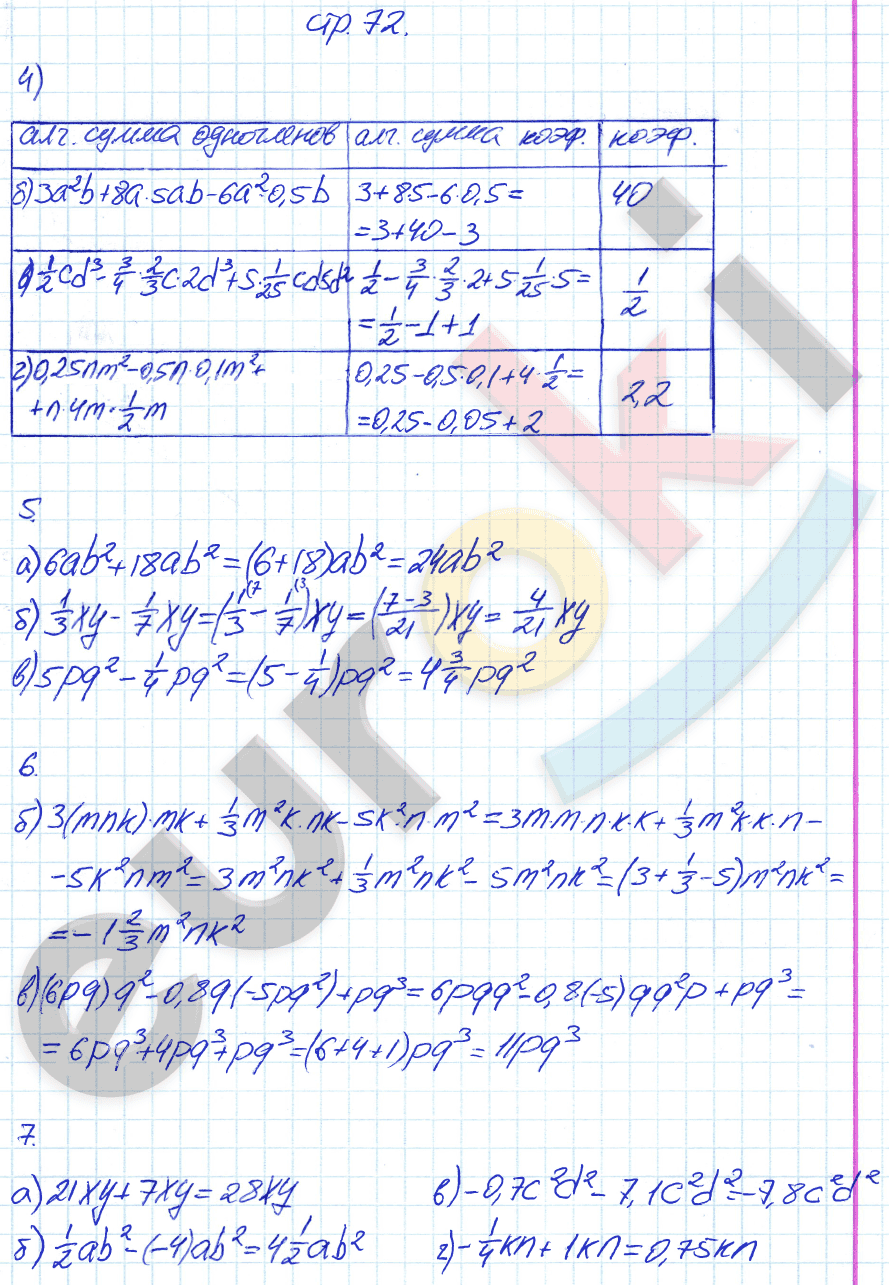 стр. 72.
4)
алг. сумма одночленов | алг. сумма коэф. | коэф.
б) 3a²b+8a·5ab-6a²·0,5b | 3+8·5-6·0,5= | 40
=3+40-3
в) 1/2cd³-3/4·2/3c·2d³+5·1/25cd5d² | 1/2-3/4·2/3·2+5·1/25·5= | 1/2
=1/2-1+1
г) 0,25nm²-0,5n·0,1m²+ | 0,25-0,5·0,1+4·1/2= | 2,2
+n·4m·1/2m | =0,25-0,05+2
5.
а) 6ab²+18ab²=(6+18)ab²=24ab²
б) 1/3xy-1/7xy=(1(7/3-1(3/7)xy=(7-3/21)xy=4/21xy
в) 5pq²-1/4pq²=(5-1/4)pq²=4 3/4pq²
6.
б) 3(mnk)·mk+1/3m²k·nk-5k²·n·m²=3m·m·n·k·k+1/3m²k·k·n-
-5k²nm²=3m²nk²+1/3m²nk²-5m²nk²=(3+1/3-5)m²nk²=
=-1 2/3m²nk²
в) (6pq)q²-0,8q(-5pq²)+pq³=6pqq²-0,8(-5)qq²p+pq³=
=6pq³+4pq³+pq³=(6+4+1)pq³=11pq³
7.
а) 21xy+7xy=28xy
в) -0,7c²d²-7,1c²d²=-7,8c²d²
б) 1/2ab²-(-4)ab²=4 1/2ab²
г) -1/4kn+1kn=0,75kn
euroki